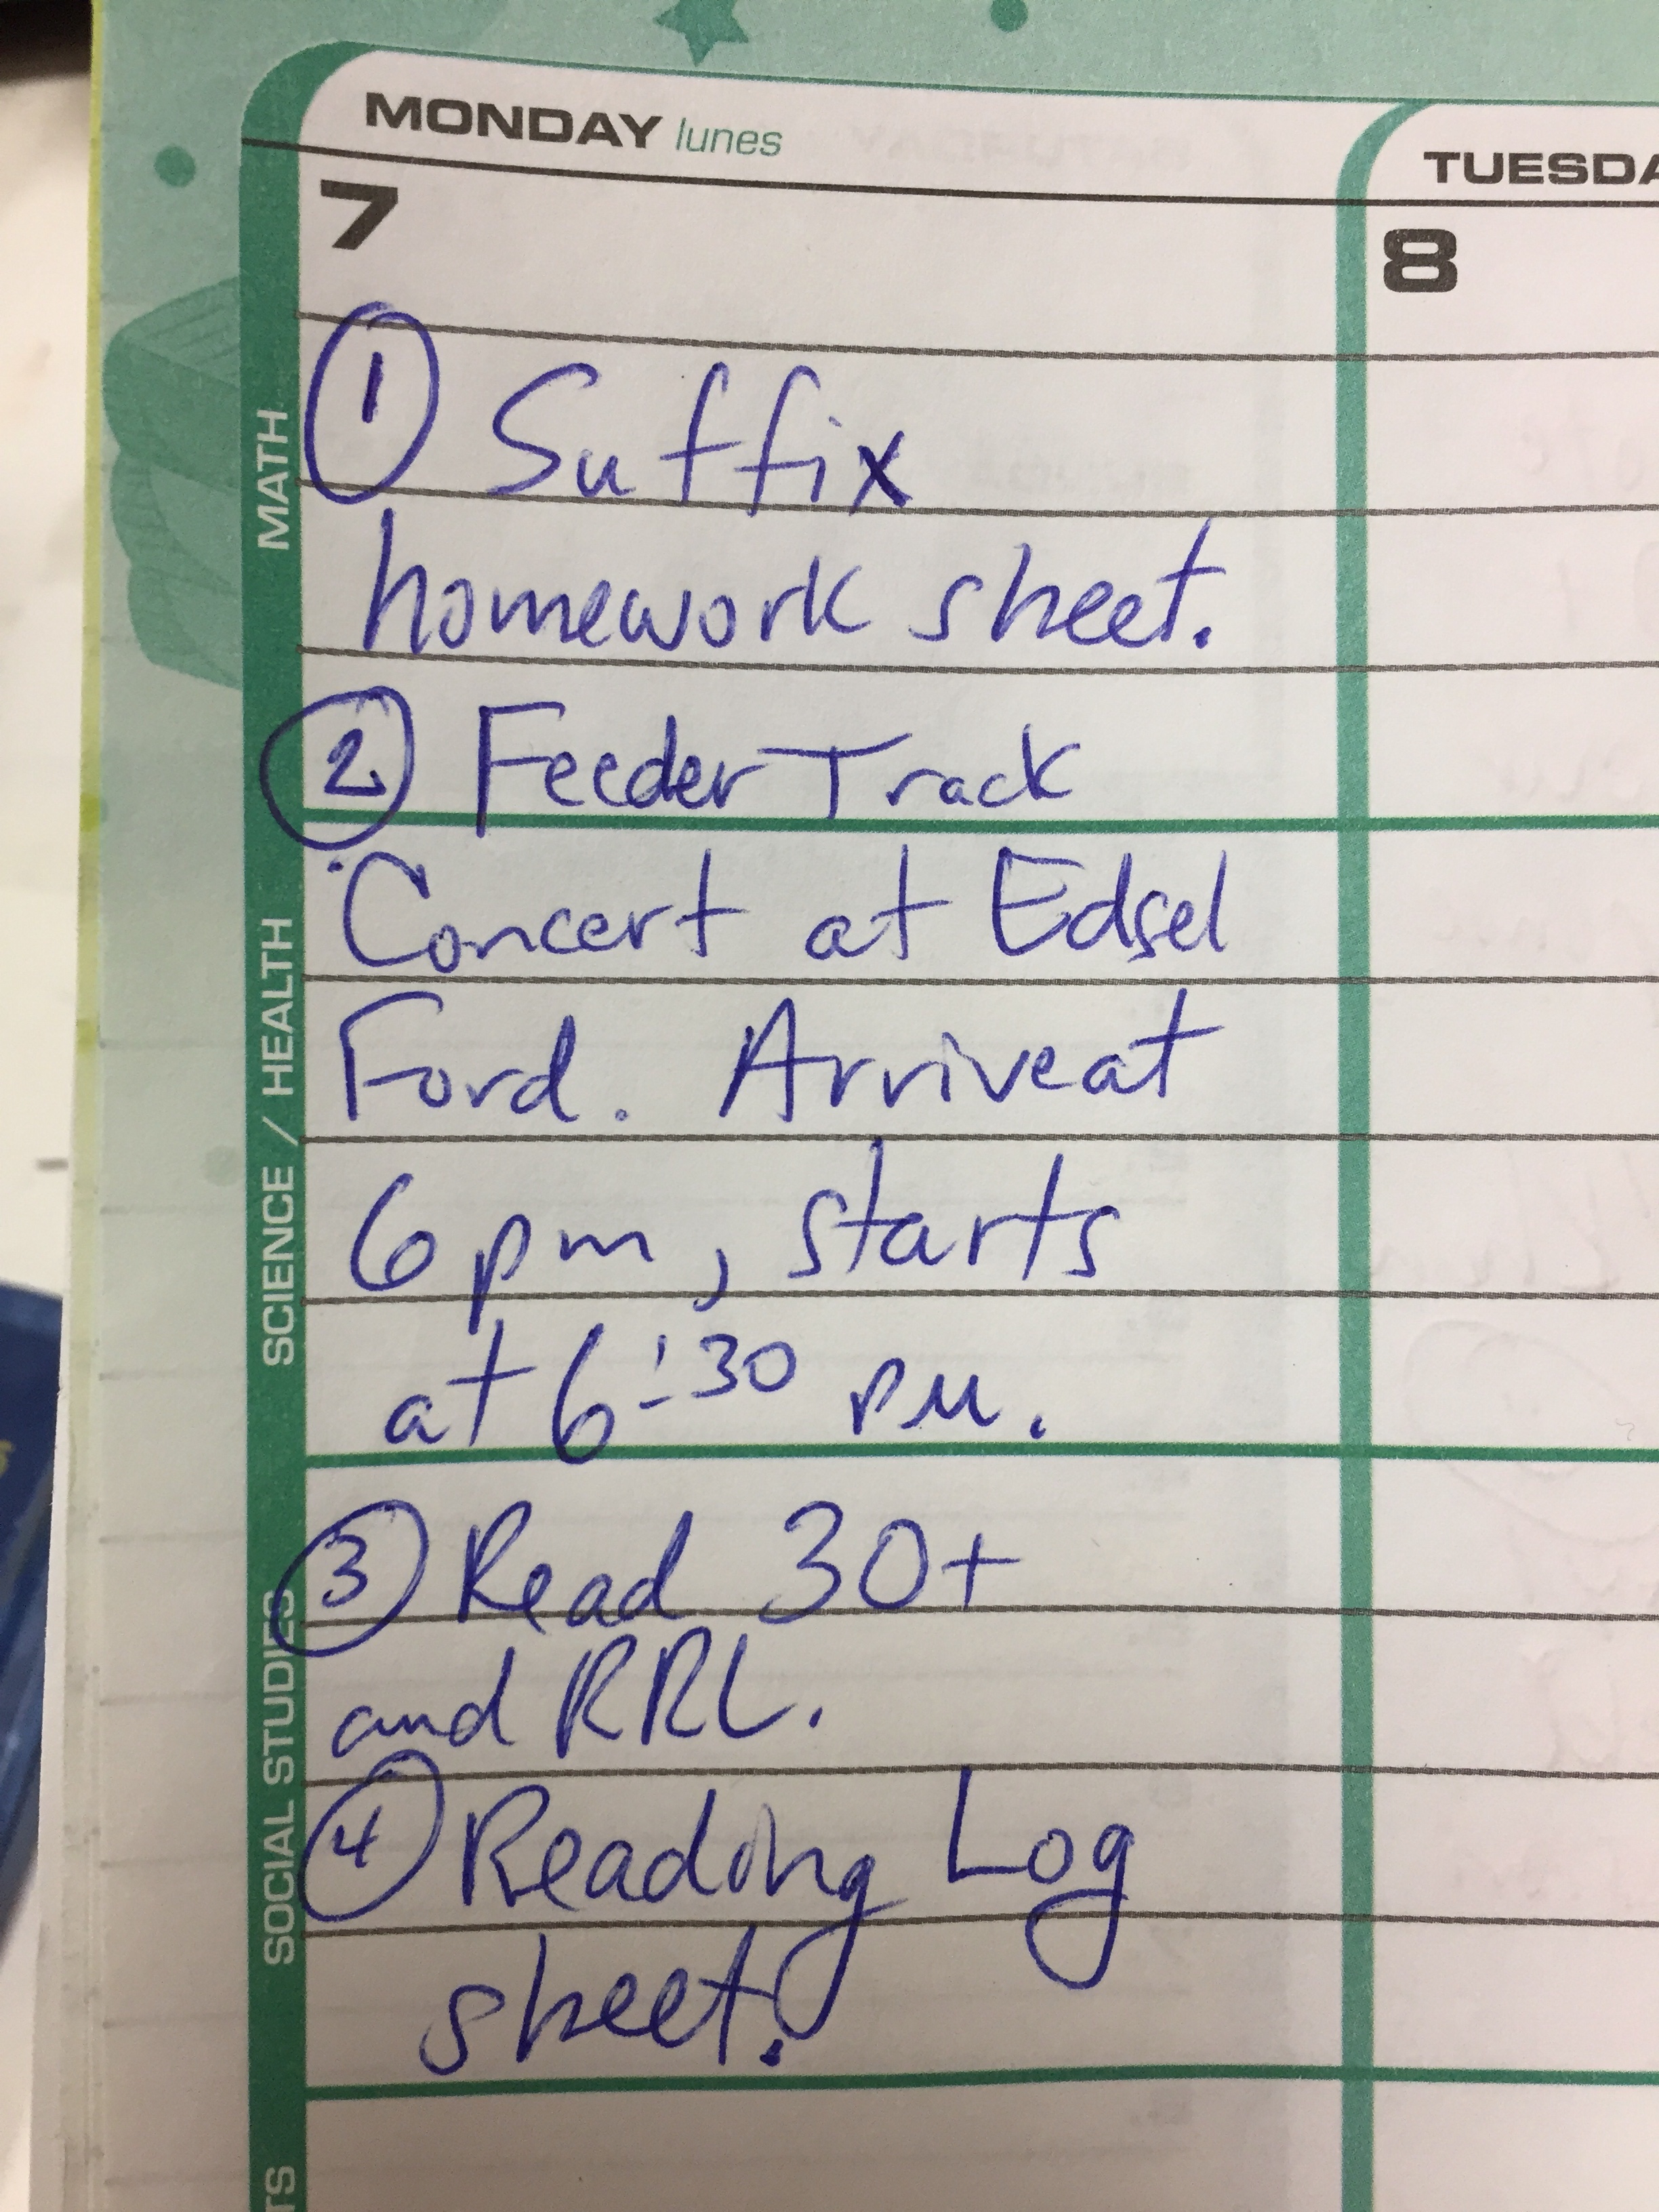 MONDAY lunes
TUESDA
7
8
MATH
① Suffix
homework sheet.
② Feeder Track
SCIENCE / HEALTH
Concert at Edsel
Ford. Arrive at
6 pm, starts
at 6:30 pm.
SOCIAL STUDIES
③ Read 30+
and RRL.
④ Reading Log
sheet.
TS